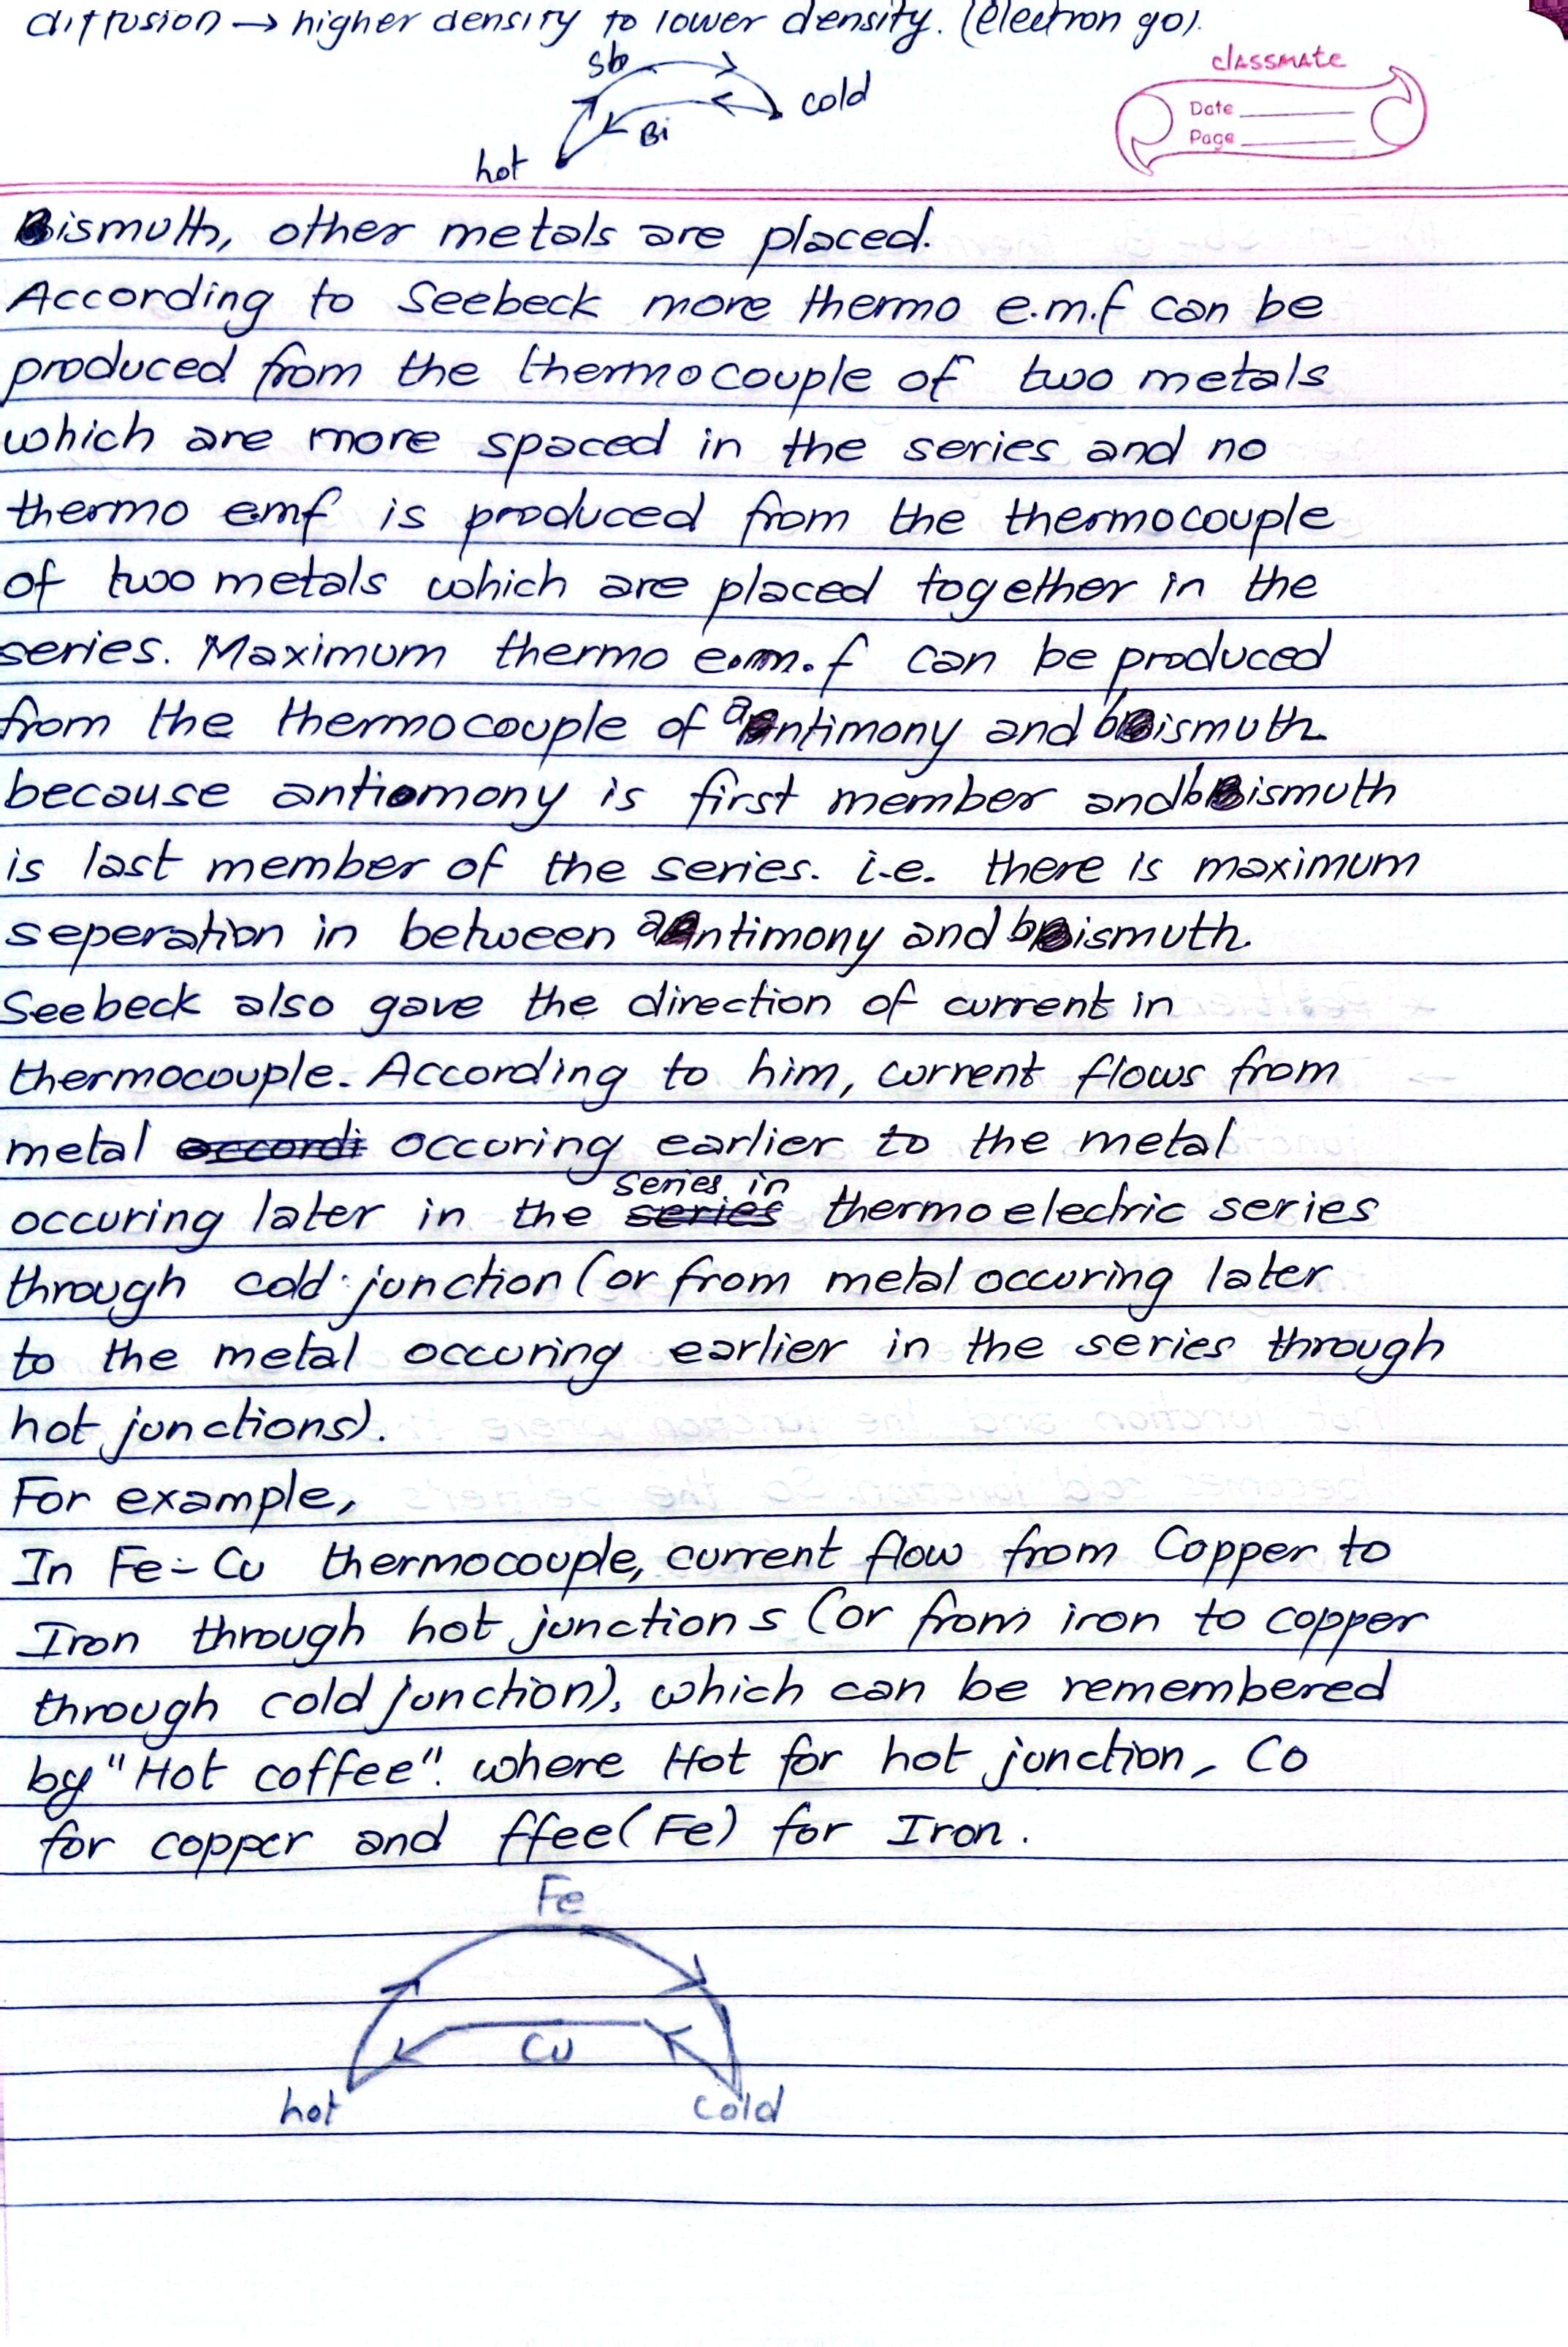 diffusion → higher density to lower density. (electron go).
Sb
cold
Bi
hot
classmate
Date
Page
Bismuth, other metals are placed.
According to Seebeck more thermo e.m.f can be
produced from the thermocouple of two metals
which are more spaced in the series and no
thermo emf is produced from the thermocouple
of two metals which are placed together in the
series. Maximum thermo e.m.f can be produced
from the thermocouple of antimony and bismuth
because antiomony is first member and bismuth
is last member of the series. i.e. there is maximum
seperation in between antimony and bismuth.
Seebeck also gave the direction of current in
thermocouple. According to him, current flows from
metal accordi occuring earlier to the metal
series in
occuring later in the series thermoelectric series
through cold junction (or from metal occuring later
to the metal occuring earlier in the series through
hot junctions).
For example,
In Fe-Cu thermocouple, current flow from Copper to
Iron through hot junctions (or from iron to copper
through cold junction), which can be remembered
by "Hot coffee". where Hot for hot junction, Co
for copper and ffee(Fe) for Iron.
Fe
Cu
hot
cold